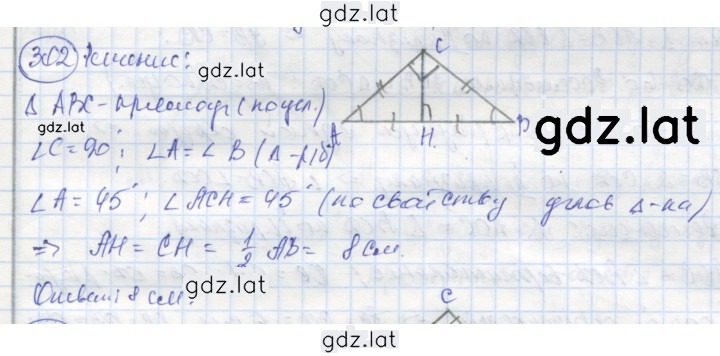 gdz.latr
302 Решение:
gdz.lat
C
Δ ABC - прямоуг (по усл.)
gdz.lat
A H B
gdz.lat
∠C = 90°; ∠A = ∠B (Δ-р/б)
∠A = 45°; ∠ACH = 45° (по свойству углов Δ-ка)
=> AH = CH = 1/2 AB = 8 см.
Ответ: 8 см.
gdz.lat
C
gdz.lat